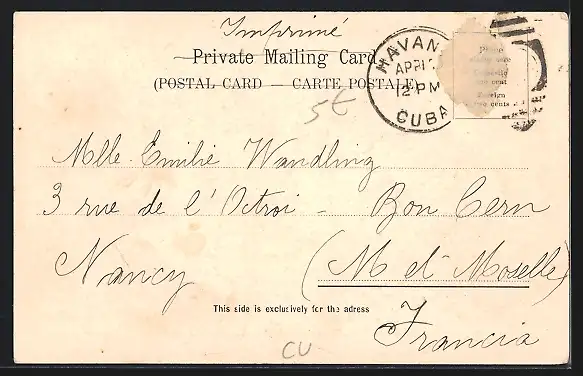 Imprimé
Private Mailing Card
(POSTAL CARD — CARTE POSTALE)
HAVANA
APR
12-PM
CUBA
Place
here
Domestic
one cent
Foreign
two cents
5€
Mlle Emilie Wandling
3 rue de l'Octroi - Bon Cern
Nancy (M et Moselle)
This side is exclusively for the adress
Francia
CU